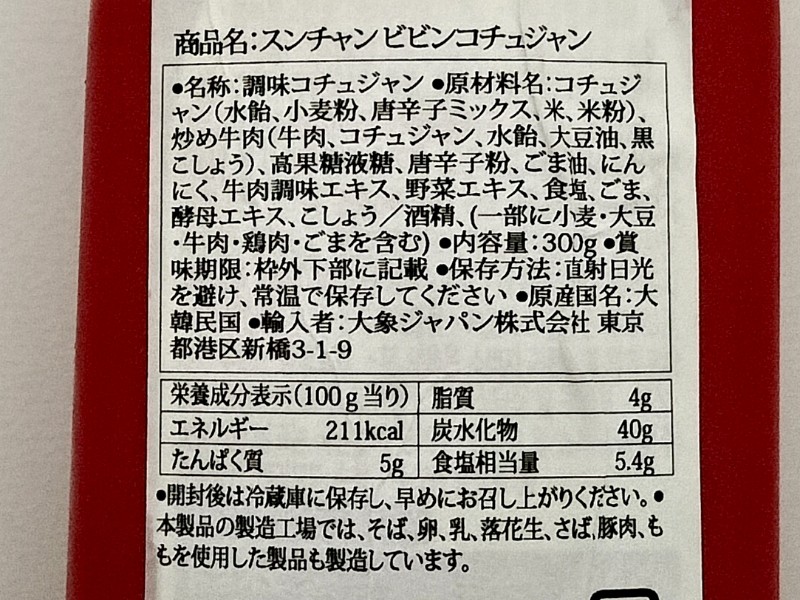 商品名:スンチャン ビビンコチュジャン
●名称:調味コチュジャン ●原材料名:コチュジ
ャン(水飴、小麦粉、唐辛子ミックス、米、米粉)、
炒め牛肉(牛肉、コチュジャン、水飴、大豆油、黒
こしょう)、高果糖液糖、唐辛子粉、ごま油、にん
にく、牛肉調味エキス、野菜エキス、食塩、ごま、
酵母エキス、こしょう/酒精、(一部に小麦・大豆
・牛肉・鶏肉・ごまを含む) ●内容量:300g ●賞
味期限:枠外下部に記載 ●保存方法:直射日光
を避け、常温で保存してください ●原産国名:大
韓民国 ●輸入者:大象ジャパン株式会社 東京
都港区新橋3-1-9
栄養成分表示(100g当り) 脂質 4g
エネルギー 211kcal 炭水化物 40g
たんぱく質 5g 食塩相当量 5.4g
●開封後は冷蔵庫に保存し、早めにお召し上がりください。●
本製品の製造工場では、そば、卵、乳、落花生、さば、豚肉、も
もを使用した製品も製造しています。